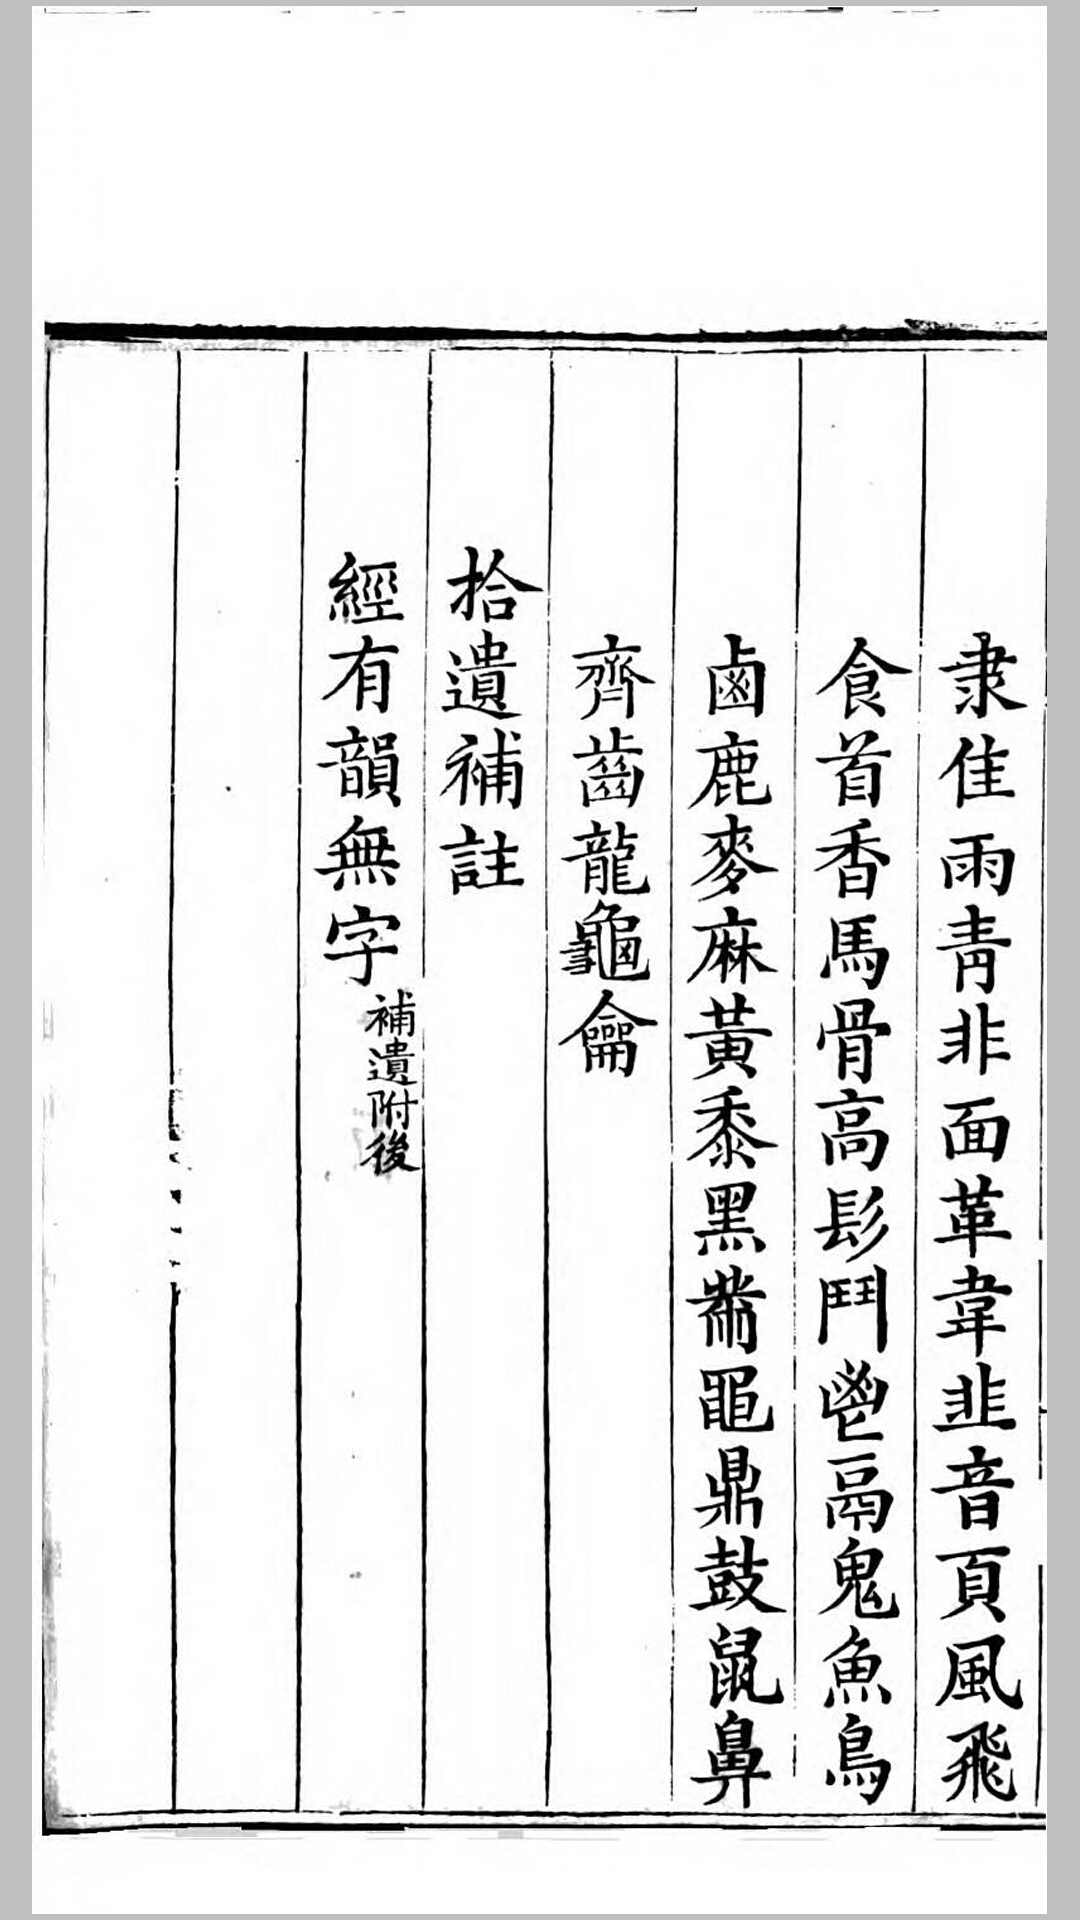 隶隹雨靑非面革韋韭音頁風飛
食首香馬骨高髟鬥鬯鬲鬼魚鳥
鹵鹿麥麻黃黍黑黹黽鼎鼓鼠鼻
齊齒龍龜龠
拾遺補註
經有韻無字補遺附後